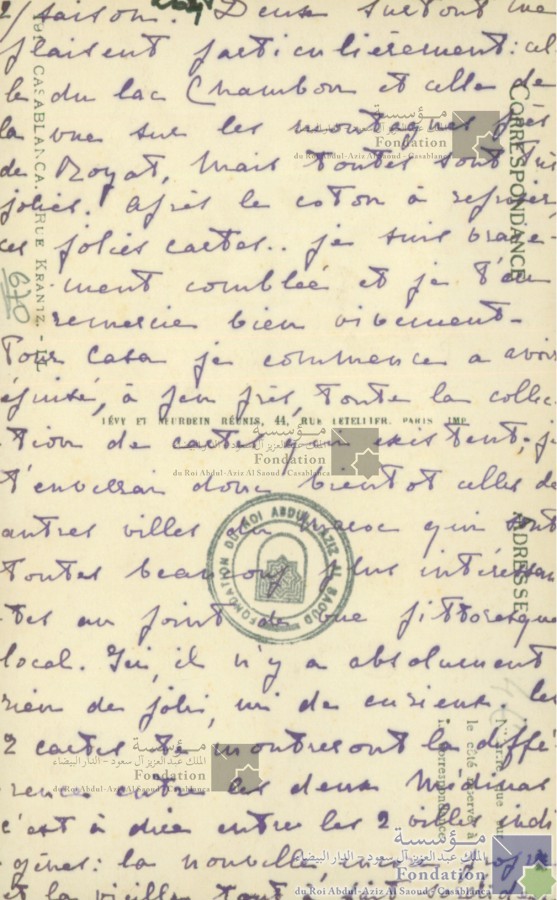 2/ saison. Deux surtout me
plaisent particulièrement : cel
le du lac Chambon et celle de
la vue sur les montagnes près
de Royat, mais toutes sont très
jolies. Après le coton à repriser
ces jolies cartes.. je suis vrai
ment comblée et je t'en
remercie bien vivement -
Pour Casa je commence à avoir
épuisé, à peu près, toute la collec
tion de cartes qui existent, je
t'enverrai donc bientôt celles des
autres villes du Maroc qui sont
toutes beaucoup plus intéressan
tes au point de vue pittoresque
local. Ici, il n'y a absolument
rien de joli, ni de curieux. Les
2 cartes te montreront la diffé
rence entre les deux Médinas
c'est à dire entre les 2 villes indi
gènes : la nouvelle, propre
et la vieille tout à fait
CORRESPONDANCE
ADRESSE
CASABLANCA. RUE KRANTZ. - LL
670
LÉVY ET NEURDEIN RÉUNIS, 44, RUE LETELLIER, PARIS IMP.
le côté réservé à
correspondance
FONDATION DU ROI ABDUL AZIZ AL SAOUD
مؤسسة
الملك عبد العزيز آل سعود - الدار البيضاء
Fondation
du Roi Abdul-Aziz Al Saoud - Casablanca
مؤسسة
الملك عبد العزيز آل سعود - الدار البيضاء
Fondation
du Roi Abdul-Aziz Al Saoud - Casablanca
مؤسسة
الملك عبد العزيز آل سعود - الدار البيضاء
Fondation
du Roi Abdul-Aziz Al Saoud - Casablanca
مؤسسة
الملك عبد العزيز آل سعود - الدار البيضاء
Fondation
du Roi Abdul-Aziz Al Saoud - Casablanca